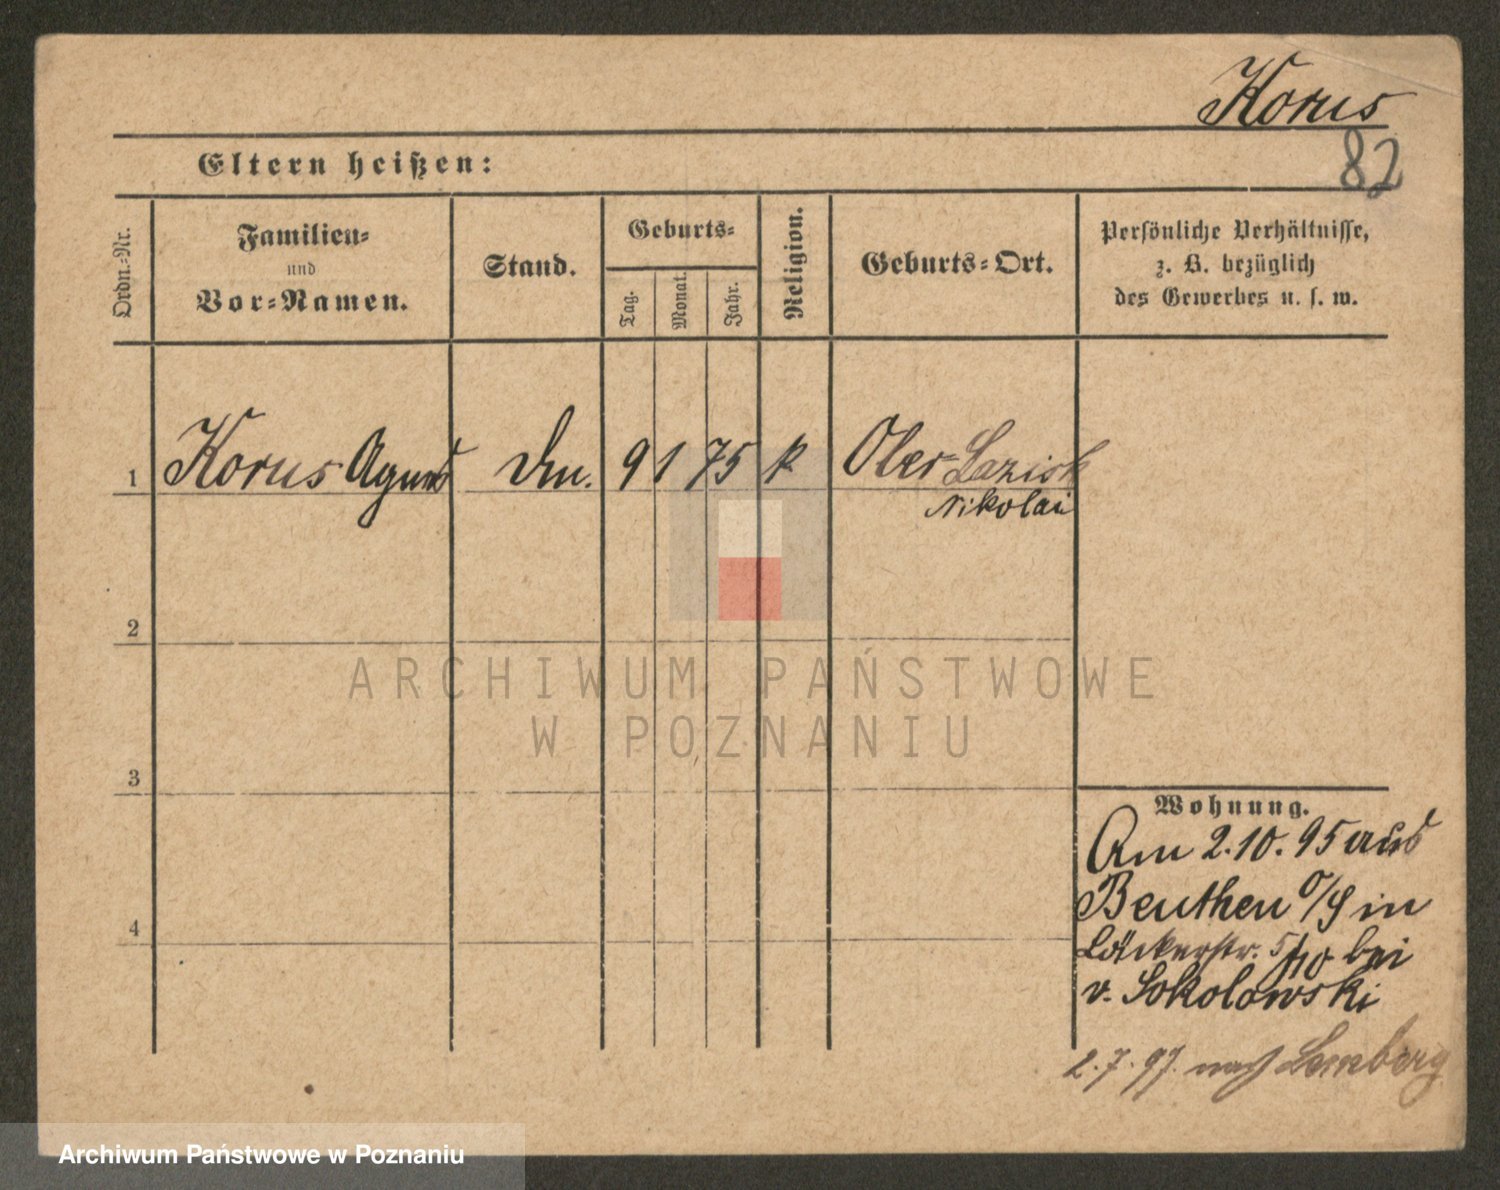 Korus
82
Eltern heißen:
Ordn.-Nr.
Familien-
und
Vor-Namen.
Stand.
Geburts-
Tag.
Monat.
Jahr.
Religion.
Geburts-Ort.
Persönliche Verhältnisse,
z. B. bezüglich
des Gewerbes u. s. w.
1 Korus Agnes 9 1 75 k Ober Lazisk
Nikolai
2
3
4
Wohnung.
Am 2.10.95 aus
Beuthen O/S in
bei
v. Sokolowski
2.7.97. nach Lemberg
ARCHIWUM PAŃSTWOWE
W POZNANIU
Archiwum Państwowe w Poznaniu